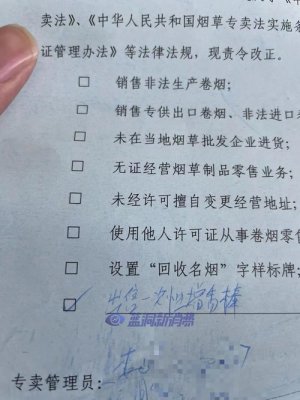 卖法》、《中华人民共和国烟草专卖法实施条
证管理办法》等法律法规，现责令改正。
销售非法生产卷烟；
销售专供出口卷烟、非法进口卷
未在当地烟草批发企业进货；
无证经营烟草制品零售业务；
未经许可擅自变更经营地址；
使用他人许可证从事卷烟零售
设置“回收名烟”字样标牌；
出售一次性增香棒
蓝洞新消费
专卖管理员：